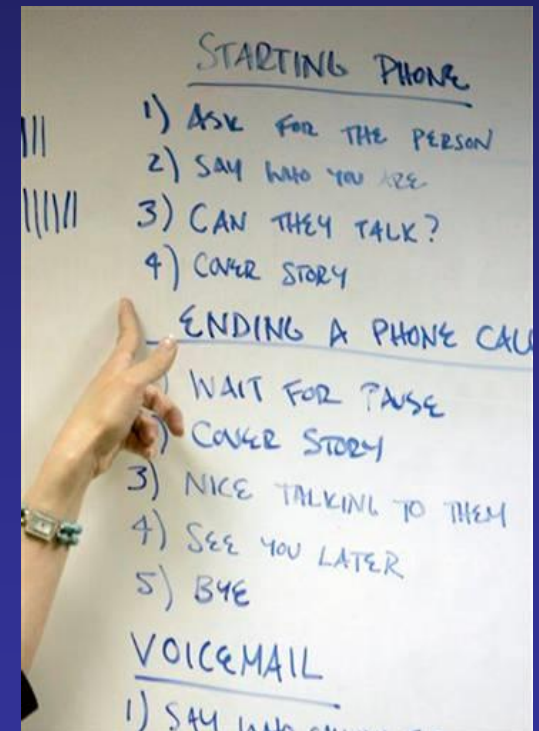 STARTING PHONE
1) ASK FOR THE PERSON
2) SAY WHO YOU ARE
3) CAN THEY TALK?
4) COVER STORY
ENDING A PHONE CALL
) WAIT FOR PAUSE
) COVER STORY
3) NICE TALKING TO THEM
4) SEE YOU LATER
5) BYE
VOICEMAIL
1) SAY WHO